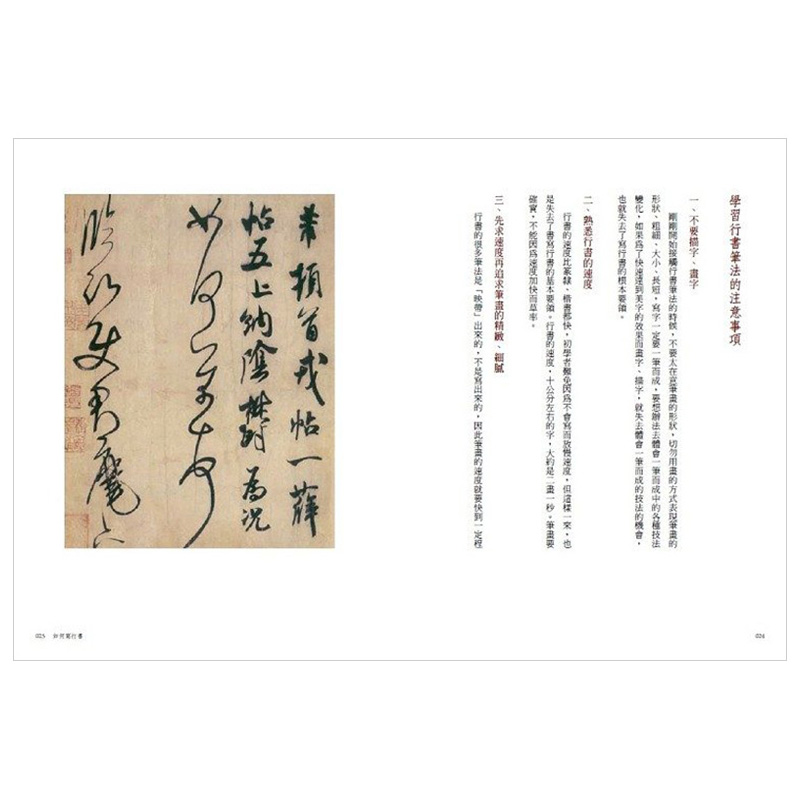 學習行書筆法的注意事項
一、不要描字、畫字
剛剛開始接觸行書筆法的時候，不要太在意筆畫的形狀，切勿用畫的方式表現筆畫的
形狀、粗細、大小、長短，寫字一定要一筆而成，要想辦法去體會一筆而成中的各種技法
變化，如果為了快速達到美字的效果而畫字、描字，就失去體會一筆而成的技法的機會，
也就失去了寫行書的根本要領。
二、熟悉行書的速度
行書的速度比篆隸、楷書都快，初學者難免因為不會寫而放慢速度，但這樣一來，也
是失去了書寫行書的基本要領。行書的速度，十公分左右的字，大約是二畫一秒。筆畫要
確實，不能因為速度加快而草率。
三、先求速度再追求筆畫的精緻、細膩
行書的很多筆法是「映帶」出來的，不是寫出來的，因此筆畫的速度就要快到一定程
024
芾頓首戎帖一薛
帖五上納陰鬱為況
如何芾頓首
025 如何寫行書